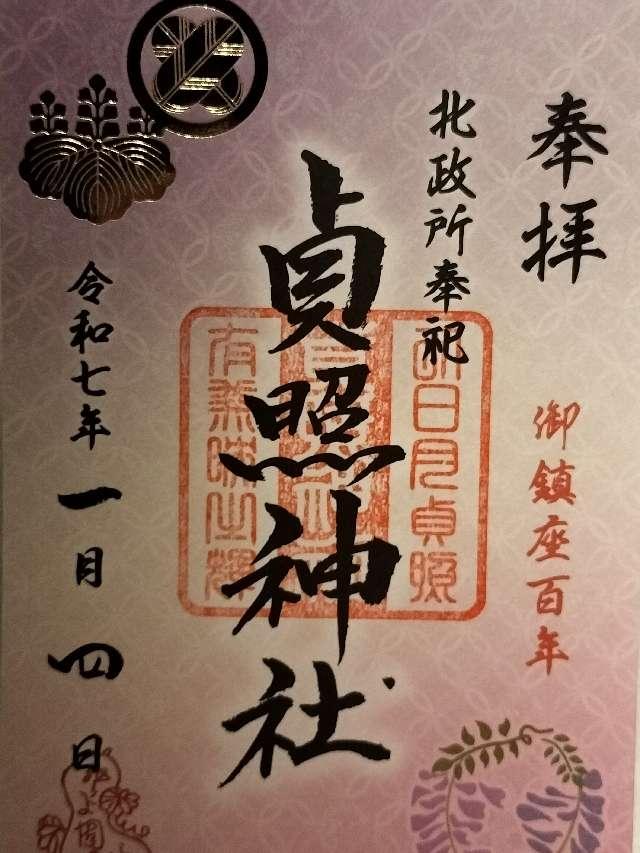 奉拝
御鎮座百年
北政所奉祀
貞照神社
令和七年
一月四日